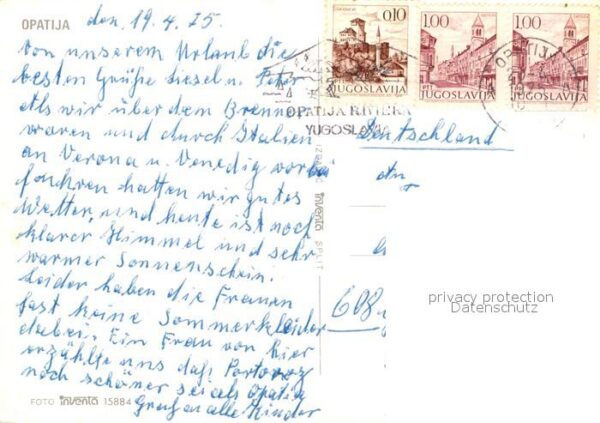 OPATIJA den 19.4.75.
Von unserem Urlaub die
besten Grüße Liesel u. Peter
Als wir über dem Brenner
waren und durch Italien
an Verona u. Venedig vorbei
fuhren hatten wir gutes
Wetter, und heute ist noch
klarer Himmel und sehr
warmer Sonnenschein.
Leider haben die Frauen
fast keine Sommerkleider
dabei. Ein Frau von hier
erzählte uns daß Portoroz
noch schöner sei als Opatija
Grüßen alle Kinder
FOTO inventa 15884
inventa SPLIT
0.10
JUGOSLAVIJA
1.00
JUGOSLAVIJA
1.00
JUGOSLAVIJA
OPATIJA
OPATIJA RIVIERA
YUGOSLAVIA
Deutschland
608
privacy protection
Datenschutz